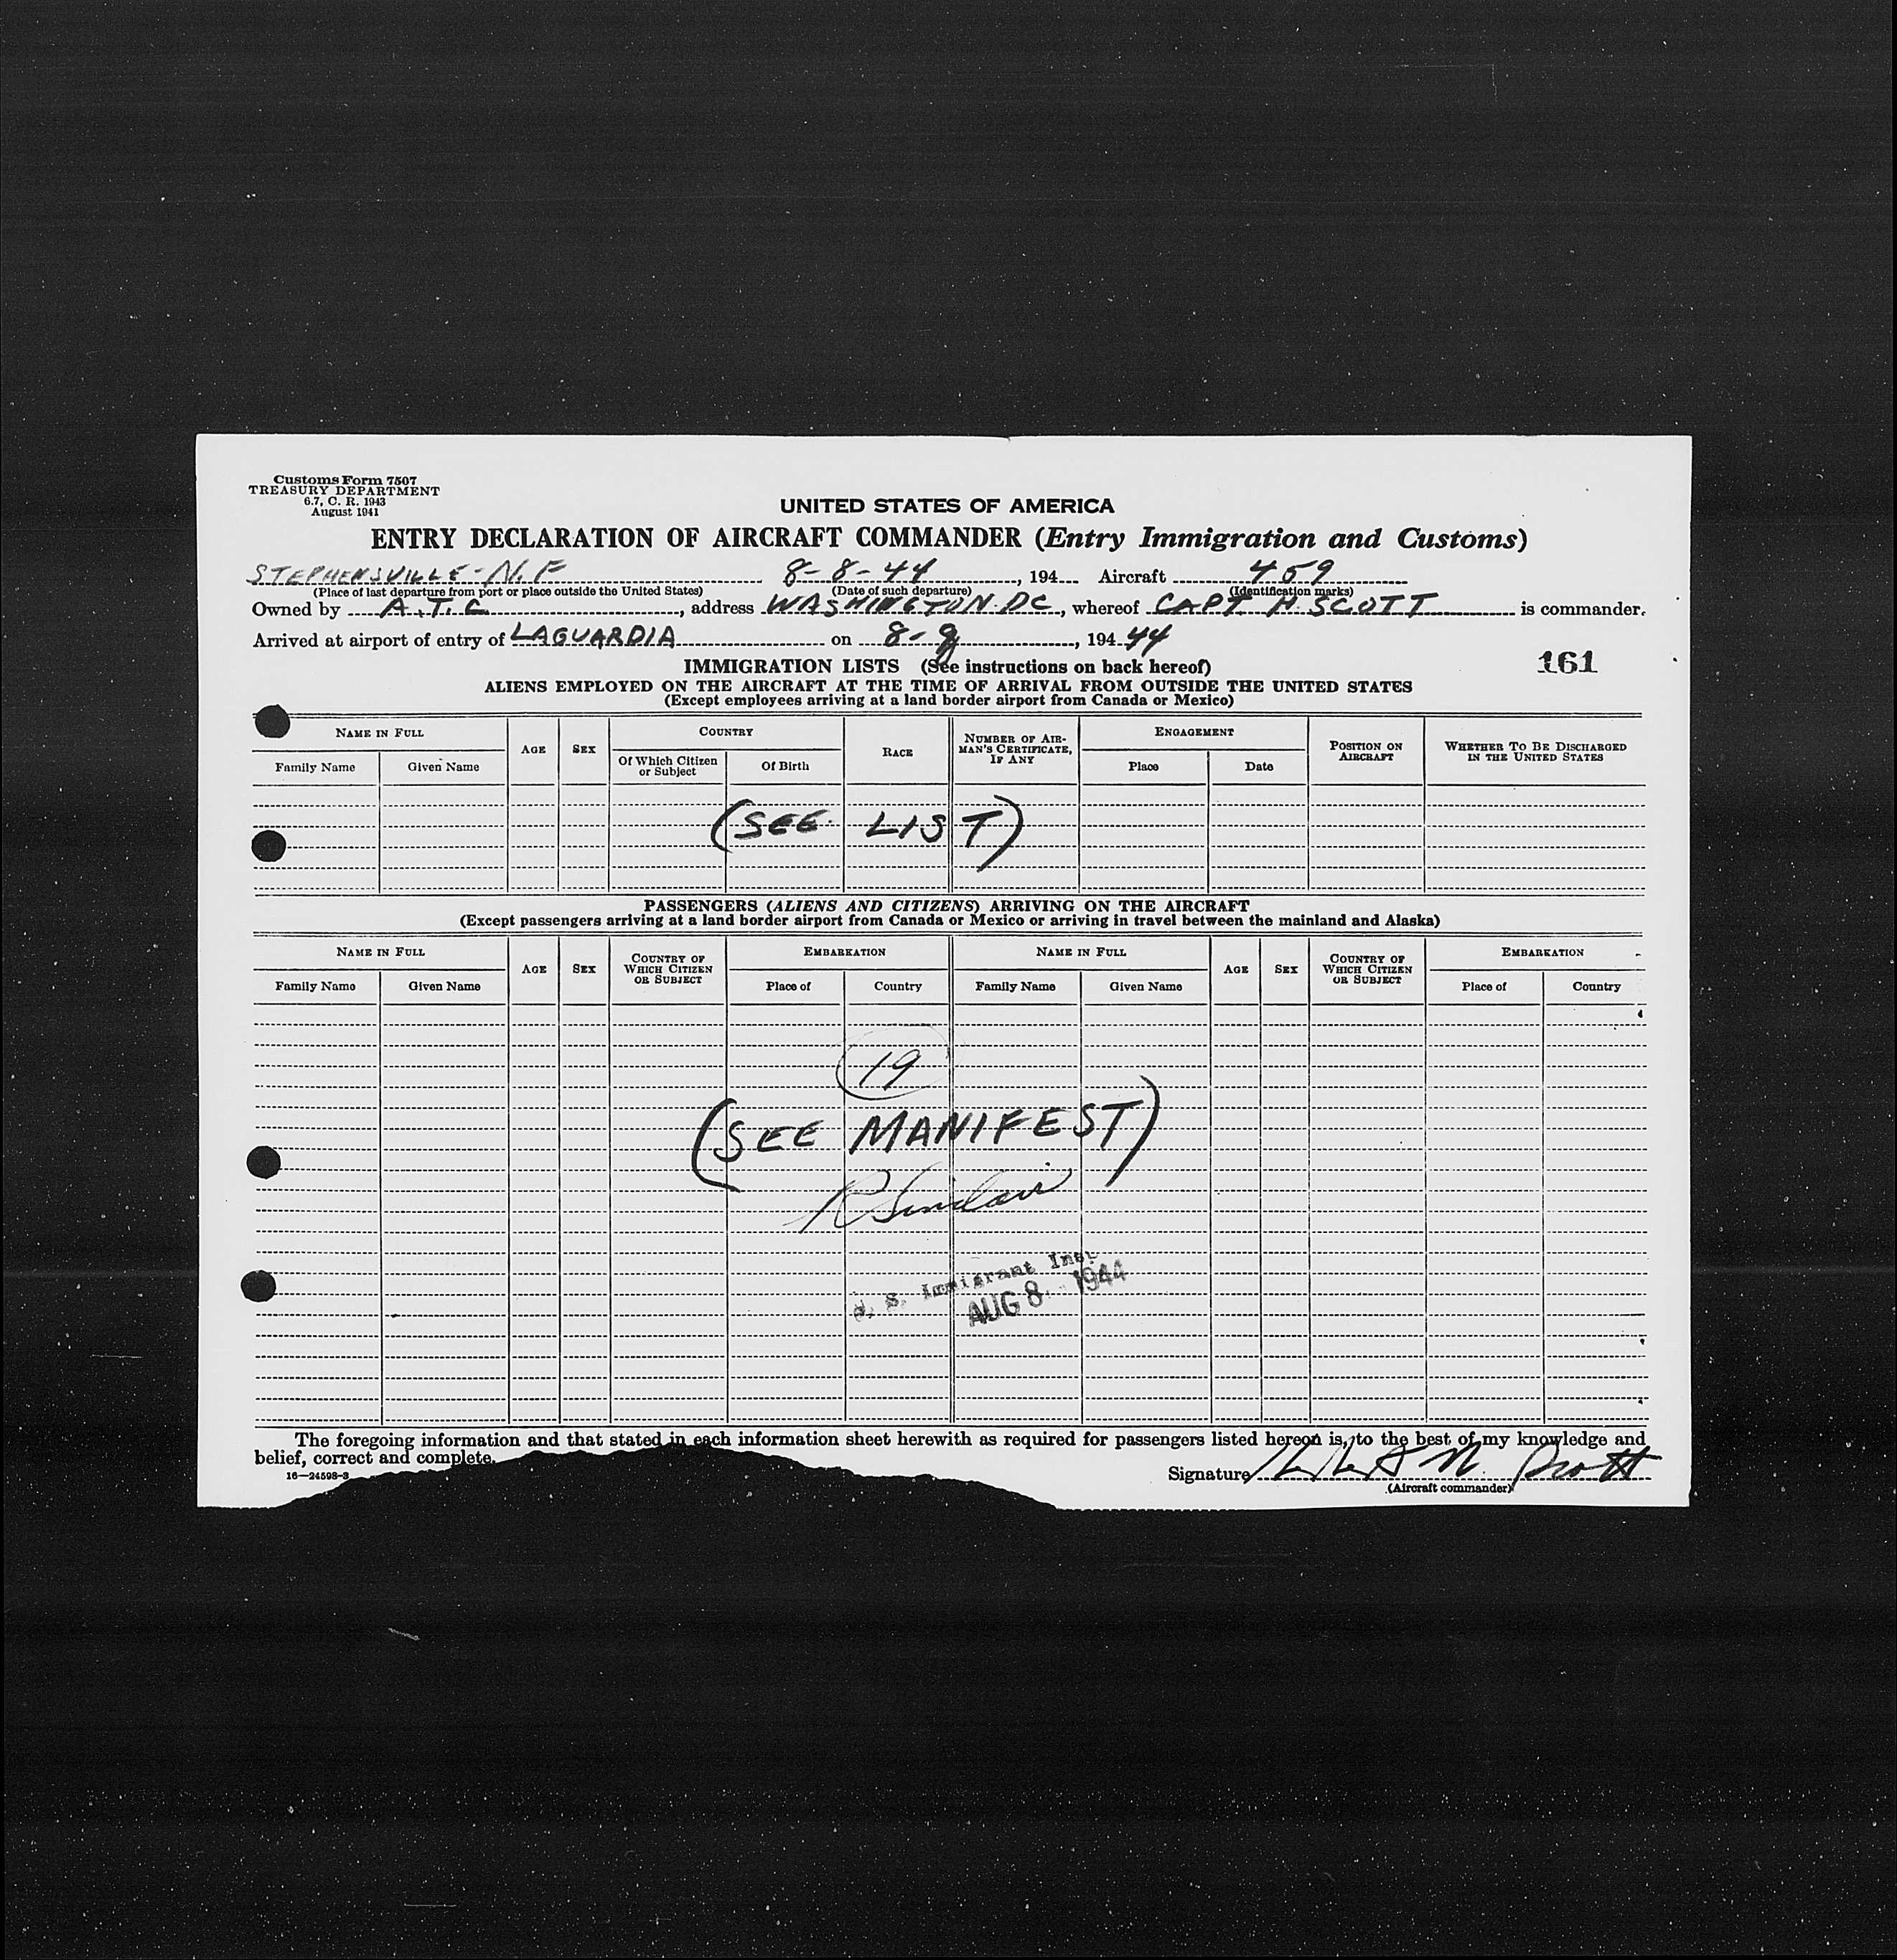 Customs Form 7507
TREASURY DEPARTMENT
6.7, C. R. 1943
August 1941
UNITED STATES OF AMERICA
ENTRY DECLARATION OF AIRCRAFT COMMANDER (Entry Immigration and Customs)
STEPHENSVILLE - N.F 8-8-44, 194 Aircraft 459
(Place of last departure from port or place outside the United States) (Date of such departure) (Identification marks)
Owned by A.T.C, address WASHINGTON DC, whereof CAPT H. SCOTT is commander.
Arrived at airport of entry of LAGUARDIA on 8-8, 194 44
161
IMMIGRATION LISTS (See instructions on back hereof)
ALIENS EMPLOYED ON THE AIRCRAFT AT THE TIME OF ARRIVAL FROM OUTSIDE THE UNITED STATES
(Except employees arriving at a land border airport from Canada or Mexico)
NAME IN FULL AGE SEX COUNTRY RACE NUMBER OF AIRMAN'S CERTIFICATE, IF ANY ENGAGEMENT POSITION ON AIRCRAFT WHETHER TO BE DISCHARGED IN THE UNITED STATES
Family Name Given Name Of Which Citizen or Subject Of Birth Place Date
(SEE LIST)
PASSENGERS (ALIENS AND CITIZENS) ARRIVING ON THE AIRCRAFT
(Except passengers arriving at a land border airport from Canada or Mexico or arriving in travel between the mainland and Alaska)
NAME IN FULL AGE SEX COUNTRY OF WHICH CITIZEN OR SUBJECT EMBARKATION NAME IN FULL AGE SEX COUNTRY OF WHICH CITIZEN OR SUBJECT EMBARKATION
Family Name Given Name Place of Country Family Name Given Name Place of Country
19
(SEE MANIFEST)
R Sinclair
U. S. Immigrant Insp.
AUG 8 - 1944
The foregoing information and that stated in each information sheet herewith as required for passengers listed hereon is, to the best of my knowledge and
belief, correct and complete.
16—24598-3
Signature Scott
(Aircraft commander)